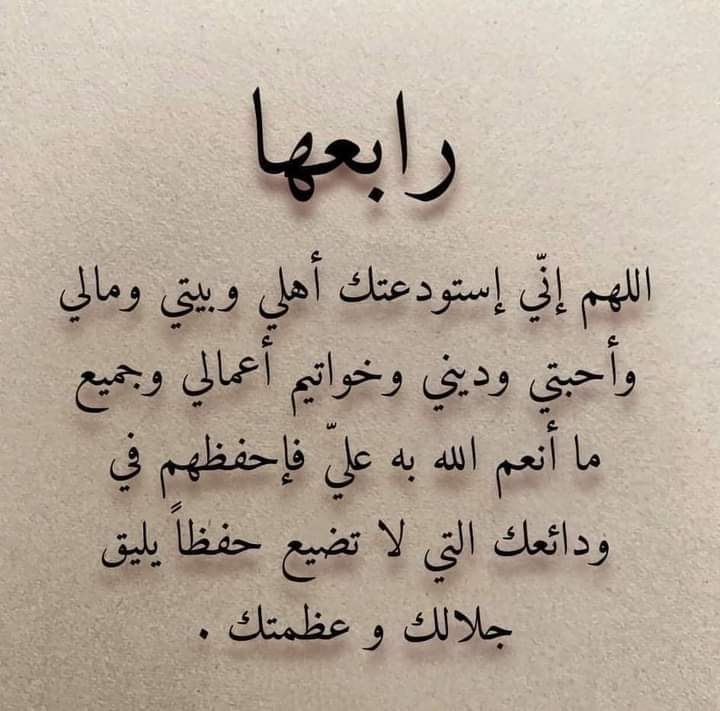 رابعها
اللهم إنّي إستودعتك أهلي وبيتي ومالي
وأحبتي وديني وخواتيم أعمالي وجميع
ما أنعم الله به عليّ فإحفظهم في
ودائعك التي لا تضيع حفظاً يليق
جلالك و عظمتك .